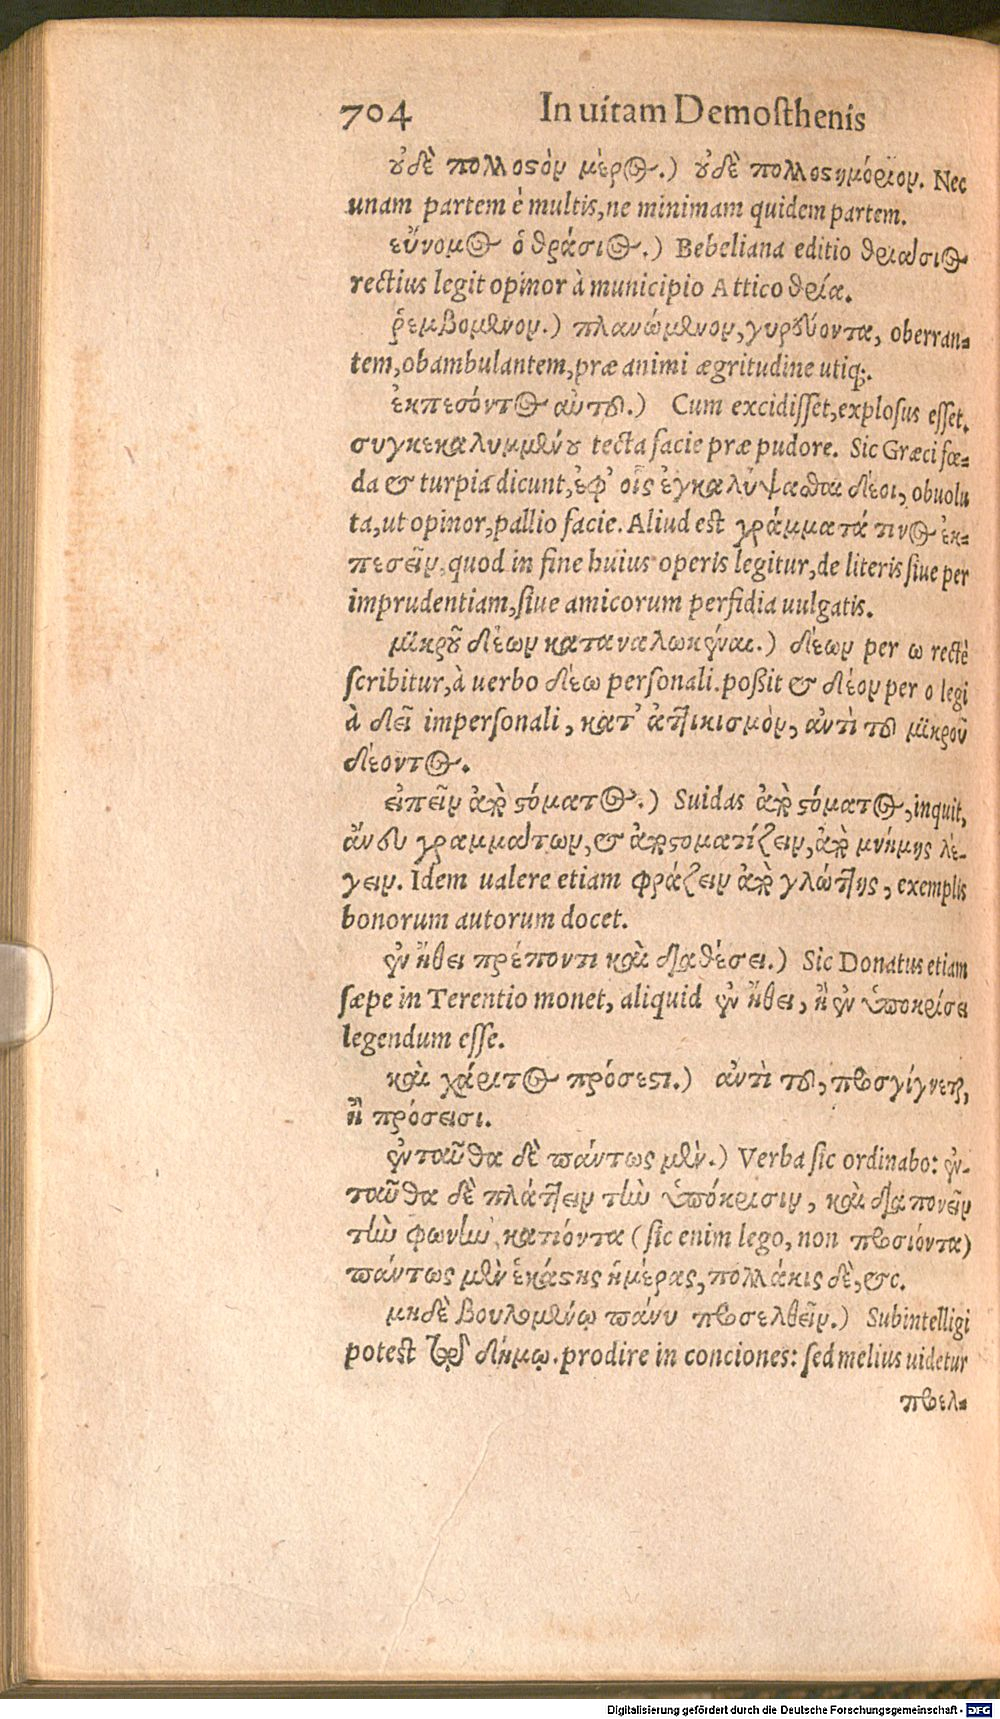 704 In uitam Demosthenis
οὐδὲ πολλοστὸν μέρος.) οὐδὲ πολλοστημόριον. Nec
unam partem è multis, ne minimam quidem partem.
εὔνομος ὁ θράσιος.) Bebeliana editio θριάσιος
rectius legit opinor à municipio Attico θρία.
ῥεμβόμενον.) πλανώμενον, γυρεύοντα, oberran-
tem, obambulantem, præ animi ægritudine utiq;.
ἐκπεσόντος αὐτοῦ.) Cum excidisset, explosus esset.
συγκεκαλυμμένου tecta facie præ pudore. Sic Græci fœ-
da & turpia dicunt, ἐφ' οἷς ἐγκαλύψασθαι δέοι, obuolu
ta, ut opinor, pallio facie. Aliud est γράμματά τινος ἐκ-
πεσεῖν, quod in fine huius operis legitur, de literis siue per
imprudentiam, siue amicorum perfidia uulgatis.
μικροῦ δέων καταναλωκέναι.) δέων per ω rectè
scribitur, à uerbo δέω personali. poßit & δέον per o legi
à δεῖ impersonali, κατ' ἀττικισμὸν, ἀντὶ τοῦ μικροῦ
δέοντος.
εἰπεῖν ἀπὸ στόματος.) Suidas ἀπὸ στόματος, inquit,
ἄνευ γραμμάτων, & ἀποστοματίζειν, ἀπὸ μνήμης λέ-
γειν. Idem ualere etiam φράζειν ἀπὸ γλώττης, exemplis
bonorum autorum docet.
ἐν ἤθει πρέποντι καὶ διαθέσει.) Sic Donatus etiam
sæpe in Terentio monet, aliquid ἐν ἤθει, ἢ ἐν ὑποκρίσει
legendum esse.
καὶ χάριτος πρόσεστι.) ἀντὶ τοῦ, προσγίγνεται,
ἢ πρόσεισι.
ἐνταῦθα δὲ πάντως μὲν.) Verba sic ordinabo: ἐν-
ταῦθα δὲ πλάττειν τὴν ὑπόκρισιν, καὶ διαπονεῖν
τὴν φωνὴν, κατιόντα (sic enim lego, non προσιόντα)
πάντως μὲν ἑκάστης ἡμέρας, πολλάκις δὲ, &c.
μηδὲ βουλομένῳ πάνυ προσελθεῖν.) Subintelligi
potest τῷ δήμῳ. prodire in conciones: sed melius uidetur
προελ-
Digitalisierung gefördert durch die Deutsche Forschungsgemeinschaft - DFG